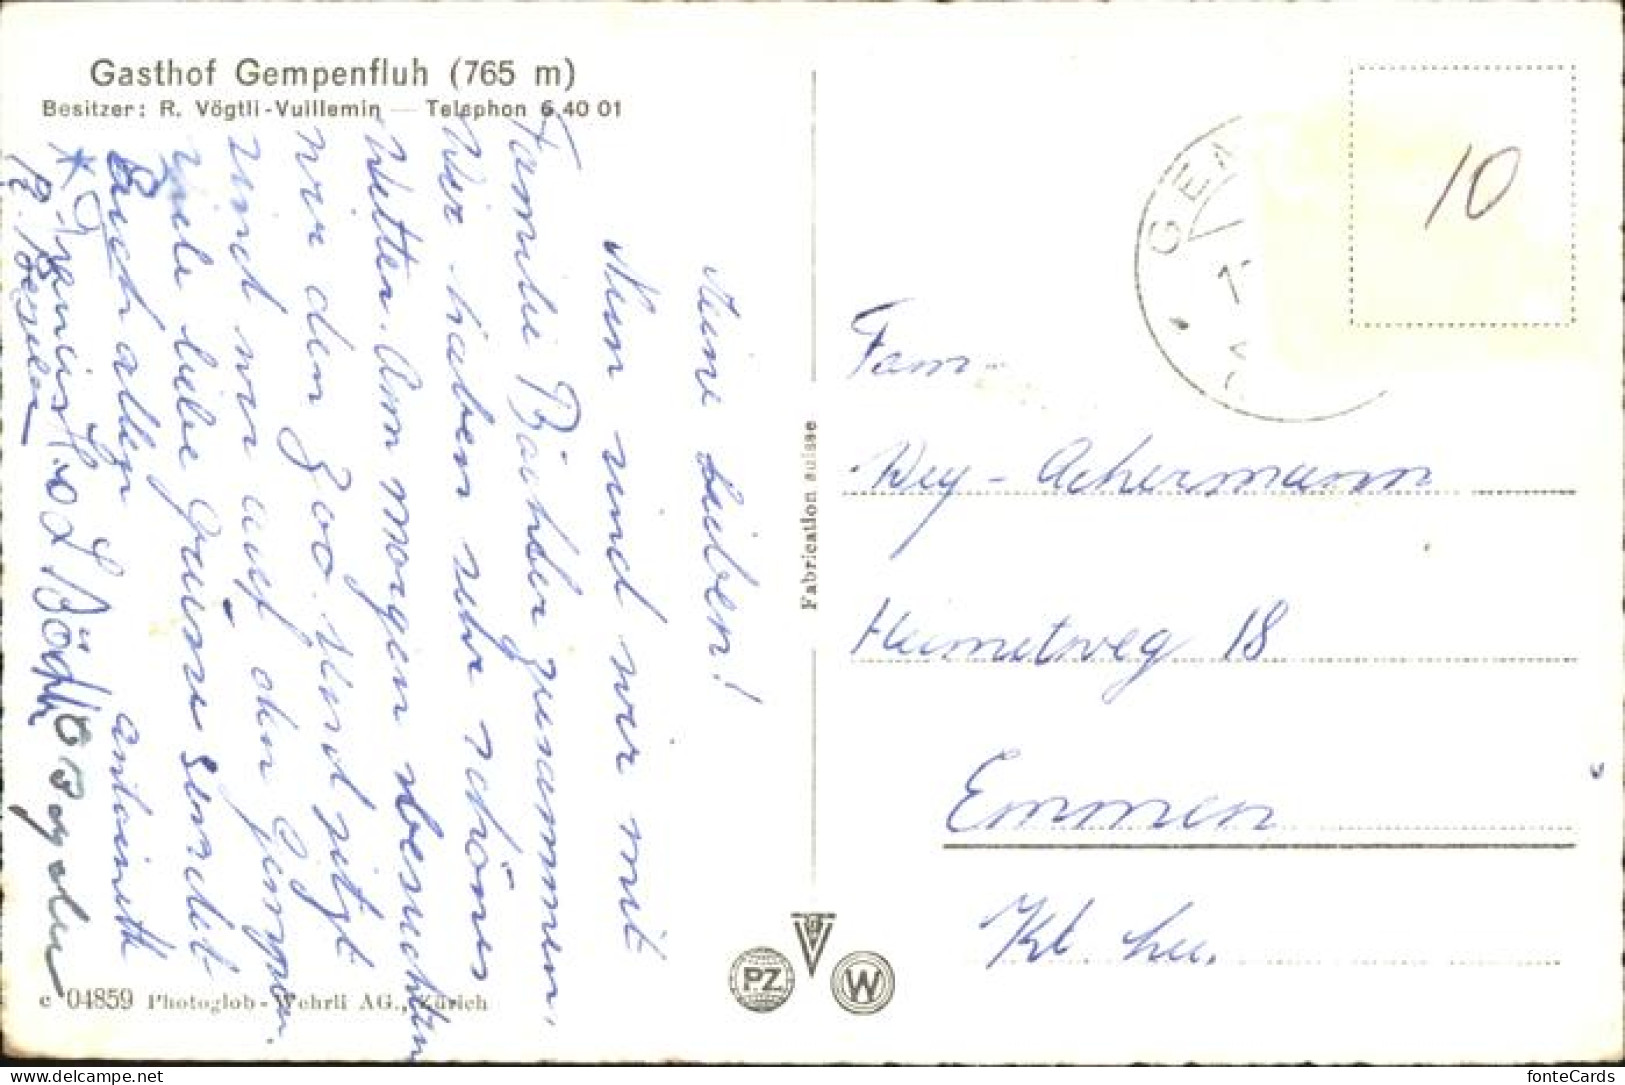 Gasthof Gempenfluh (765 m)
Besitzer: R. Vögtli-Vuillemin — Telephon 6 40 01
Meine Lieben!
Nun sind wir mit
Familie Bächler zusammen.
Wir haben sehr schönes
Wetter. Am morgen besuchten
wir den Zoo. Und jetzt
sind wir auf den Gempen.
Viele liebe Grüsse sendet
Euch allen
Fabrication suisse
GE
10
Fam.
Wey-Achermann
Heimetweg 18
Emmen
Kt. Lu.
c 04859 Photoglob-Wehrli AG., Zürich
P.Z.
W
fonteCards